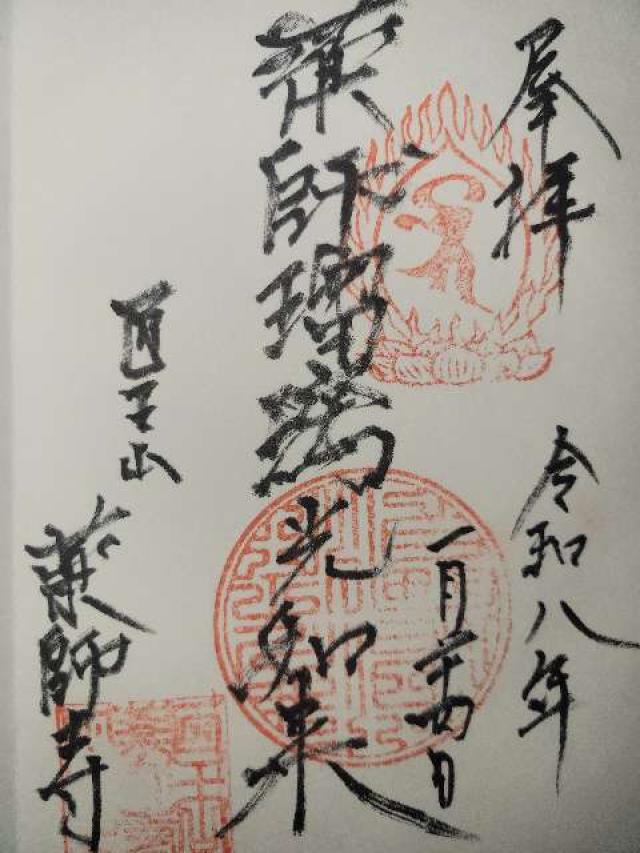 奉拝
令和八年
一月二十四日
薬師瑠璃光如来
医王山
薬師寺